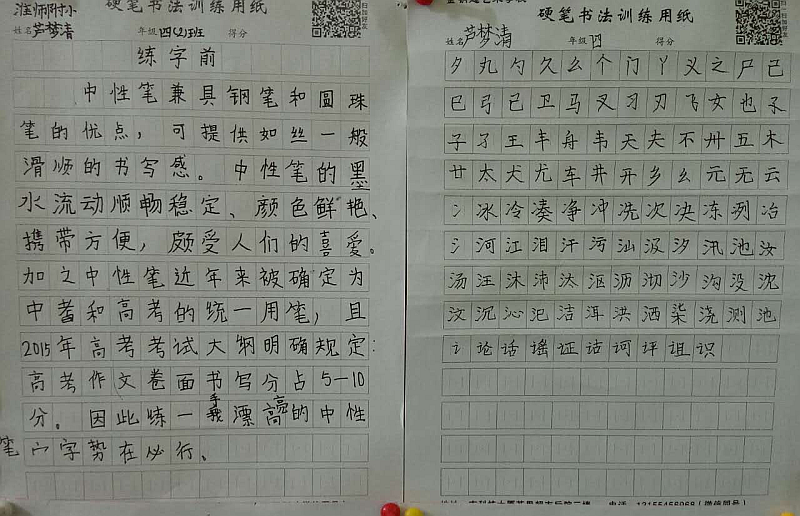 淮师附小
硬笔书法训练用纸
姓名 芦梦清 年级 四(2)班 得分
练字前
中性笔兼具钢笔和圆珠
笔的优点，可提供如丝一般
滑顺的书写感。中性笔的墨
水流动顺畅稳定、颜色鲜艳、
携带方便，颇受人们的喜爱。
加之中性笔近年来被确定为
中考和高考的统一用笔，且
2015年高考考试大纲明确规定：
高考作文卷面书写分占5—10
分。因此练一手漂亮的中性
笔字势在必行、
硬笔书法训练用纸
姓名 芦梦清 年级 四 得分
夕丸勺久么个门丫义之尸己
巳弓已卫马叉刁刃飞女也孑
子孓王丰舟韦天夫不卅五木
廿太犬尤车井开乡幺元无云
冫冰冷凑净冲冼次决冻冽冶
氵河江泪汗污汕汲汐汛池汝
汤汪沐沛汰沤沥沏沙沟没沈
汶沉沁汜洁洱洪洒柒浇测池
讠论话谣证诂诃评诅识